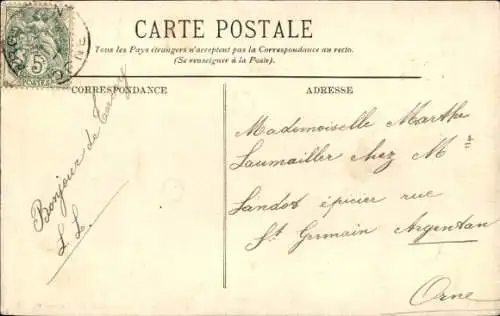 CARTE POSTALE
Tous les Pays étrangers n'acceptent pas la Correspondance au recto.
(Se renseigner à la Poste).
5c
CORRESPONDANCE
Bonjour de
L. L.
ADRESSE
Mademoiselle Marthe
Laumailler chez Mr
Landot épicier rue
St Germain Argentan
Orne